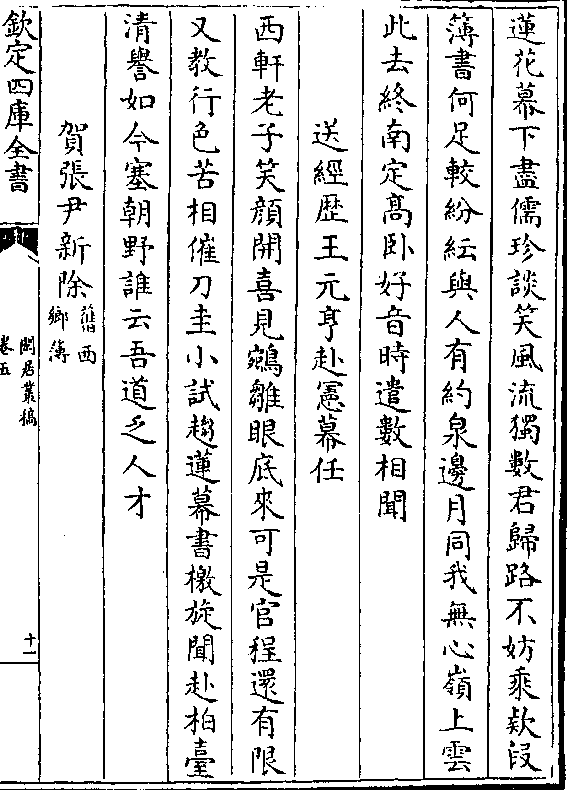 蓮花幕下盡儒珍談笑風流獨數君歸路不妨乘欵段
簿書何足較紛紜與人有約泉邊月同我無心嶺上雲
此去終南定髙卧好音時遣數相聞
送經歴王元亨赴憲幕任
西軒老子笑顔開喜見鵷雛眼底來可是官程還有限
又教行色苦相催刀圭小試趨蓮幕書檄旋聞赴柏臺
清譽如今塞朝野誰云吾道乏人才
賀張尹新除舊西鄉簿
欽定四庫全書
閒居叢稿
卷五
十一